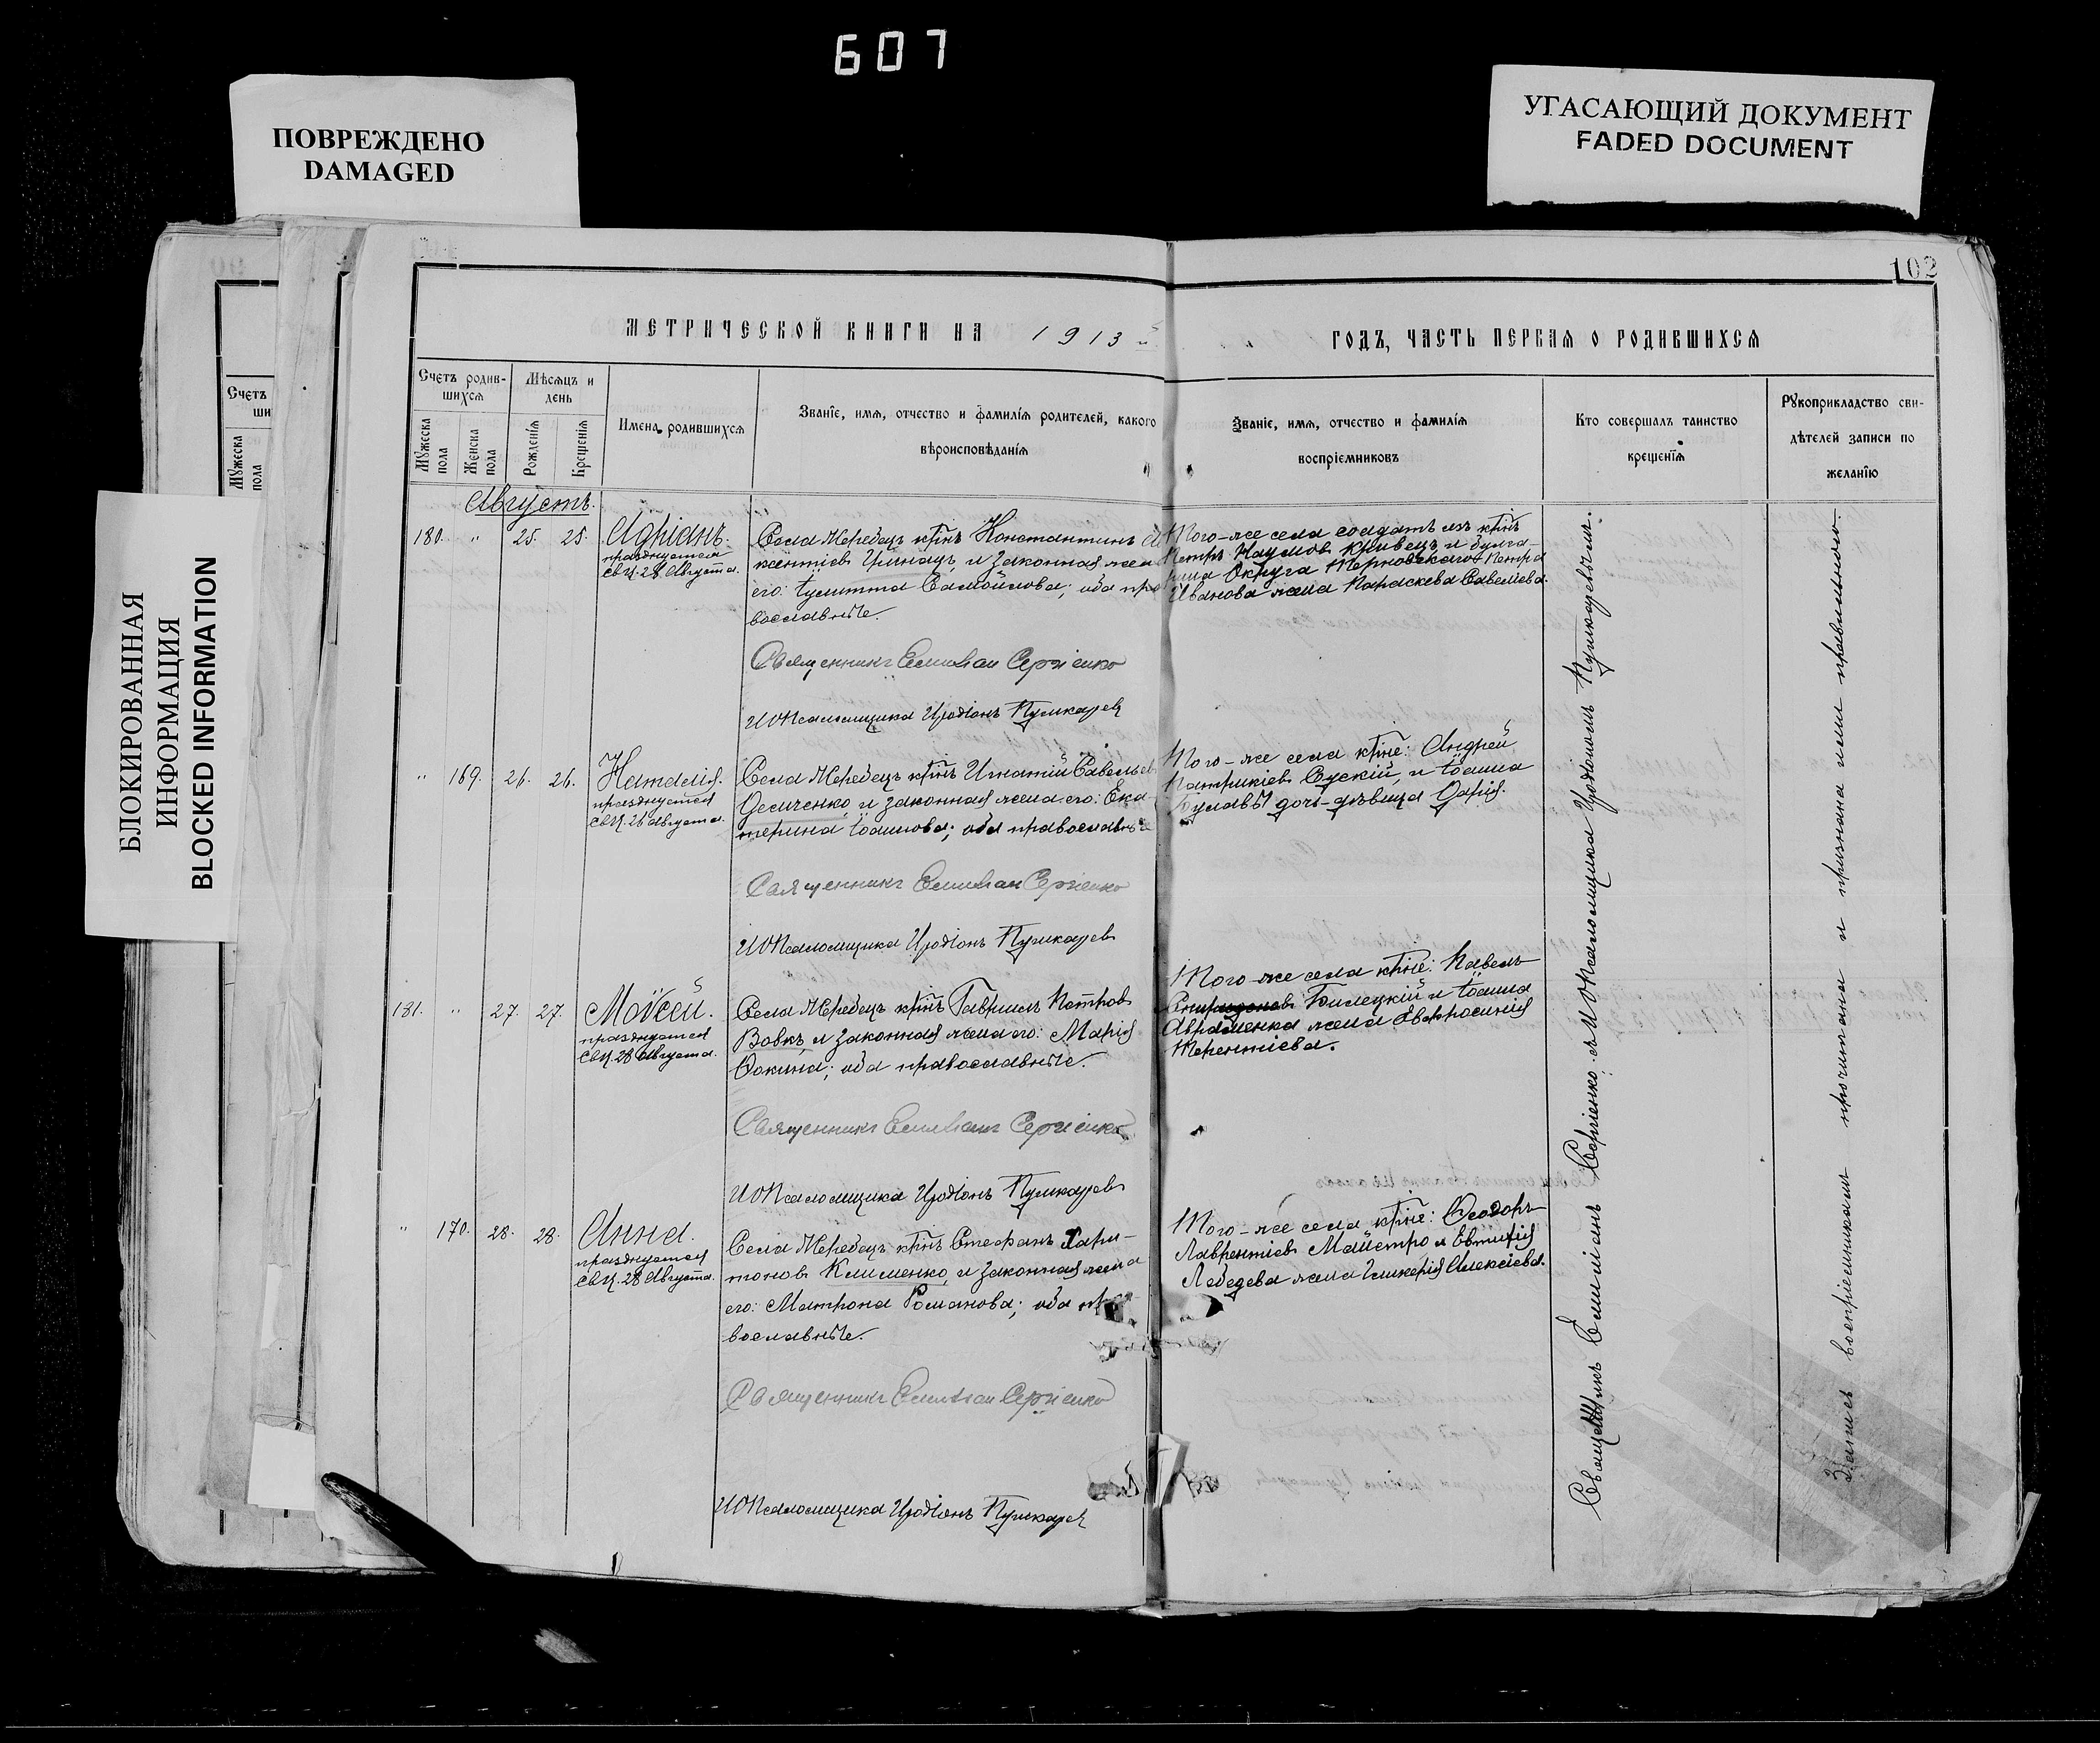 607
ПОВРЕЖДЕНО
DAMAGED
УГАСАЮЩИЙ ДОКУМЕНТ
FADED DOCUMENT
БЛОКИРОВАННАЯ
ИНФОРМАЦИЯ
BLOCKED INFORMATION
102
МЕТРИЧЕСКОЙ КНИГИ НА 1913 ГОДЪ, ЧАСТЬ ПЕРВАЯ О РОДИВШИХСЯ
Счетъ
ши
Мужеска
пола
Счетъ родив-
шихся
Мужеска
пола
Женска
пола
Мѣсяцъ и
день
Рожденія
Крещенія
Имена родившихся
Званіе, имя, отчество и фамилія родителей, какого
вѣроисповѣданія
Званіе, имя, отчество и фамилія
воспріемниковъ
Кто совершалъ таинство
крещенія
Рукоприкладство сви-
дѣтелей записи по
желанію
Августъ.
180. " 25. 25. Адріанъ.
празднуется
св. Ц. 28 Августа.
Села Жеребецъ крнъ Константинъ
кентіевъ и законная жена
его: Іулитта Самойлова; оба пра
вославные.
Священникъ Емиліан Сергіенко
ИОПсаломщика Иродіонъ Пушкаревъ
Того-же села солдатъ изъ крнъ
Петръ Наумовъ Кривецъ и
Округа Терновскаго Петра
Иванова жена Параскева Савелиева.
" 169. 26. 26. Наталія.
празднуется
св. Ц. 26 Августа.
Села Жеребецъ крнъ Игнатій Савельев
и законная жена его: Ека-
терина Іоаннова; оба православные
Священникъ Емиліан Сергіенко
ИОПсаломщика Иродіонъ Пушкаревъ
Того-же села крне: Андрей
Патрикіевъ Сускій, и Іоанна
Булавы дочь-дѣвица Дарія.
181. " 27. 27. Моѵсей.
празднуется
св. Ц. 28 Августа.
Села Жеребецъ крнъ Гавриилъ Петровъ
Вовкъ, и законная жена его: Марія
Фокина; оба православные.
Священникъ Емиліанъ Сергіенко
ИОПсаломщика Иродіонъ Пушкаревъ
Того-же села крне: Павелъ
Спиридоновъ Билецкій и Іоанна
Авраменка жена Евфросинія
Терентіева.
" 170. 28. 28. Анна.
празднуется
св. Ц. 28 Августа.
Села Жеребецъ крнъ Стефанъ Хари-
тоновъ Клименко, и законная жена
его: Матрона Романова; оба пра-
вославные.
Священникъ Емиліан Сергіенко
ИОПсаломщика Иродіонъ Пушкаревъ
Того-же села крне: Ѳеодоръ
Лаврентіевъ Майстро и Евтихія
Лебедева жена Гликерія Алексіева.
Священникъ Емиліанъ Сергіенко съ ИОПсаломщика Иродіономъ Пушкаревымъ.
Запись воспріемникамъ прочитана и признана ими правильною.